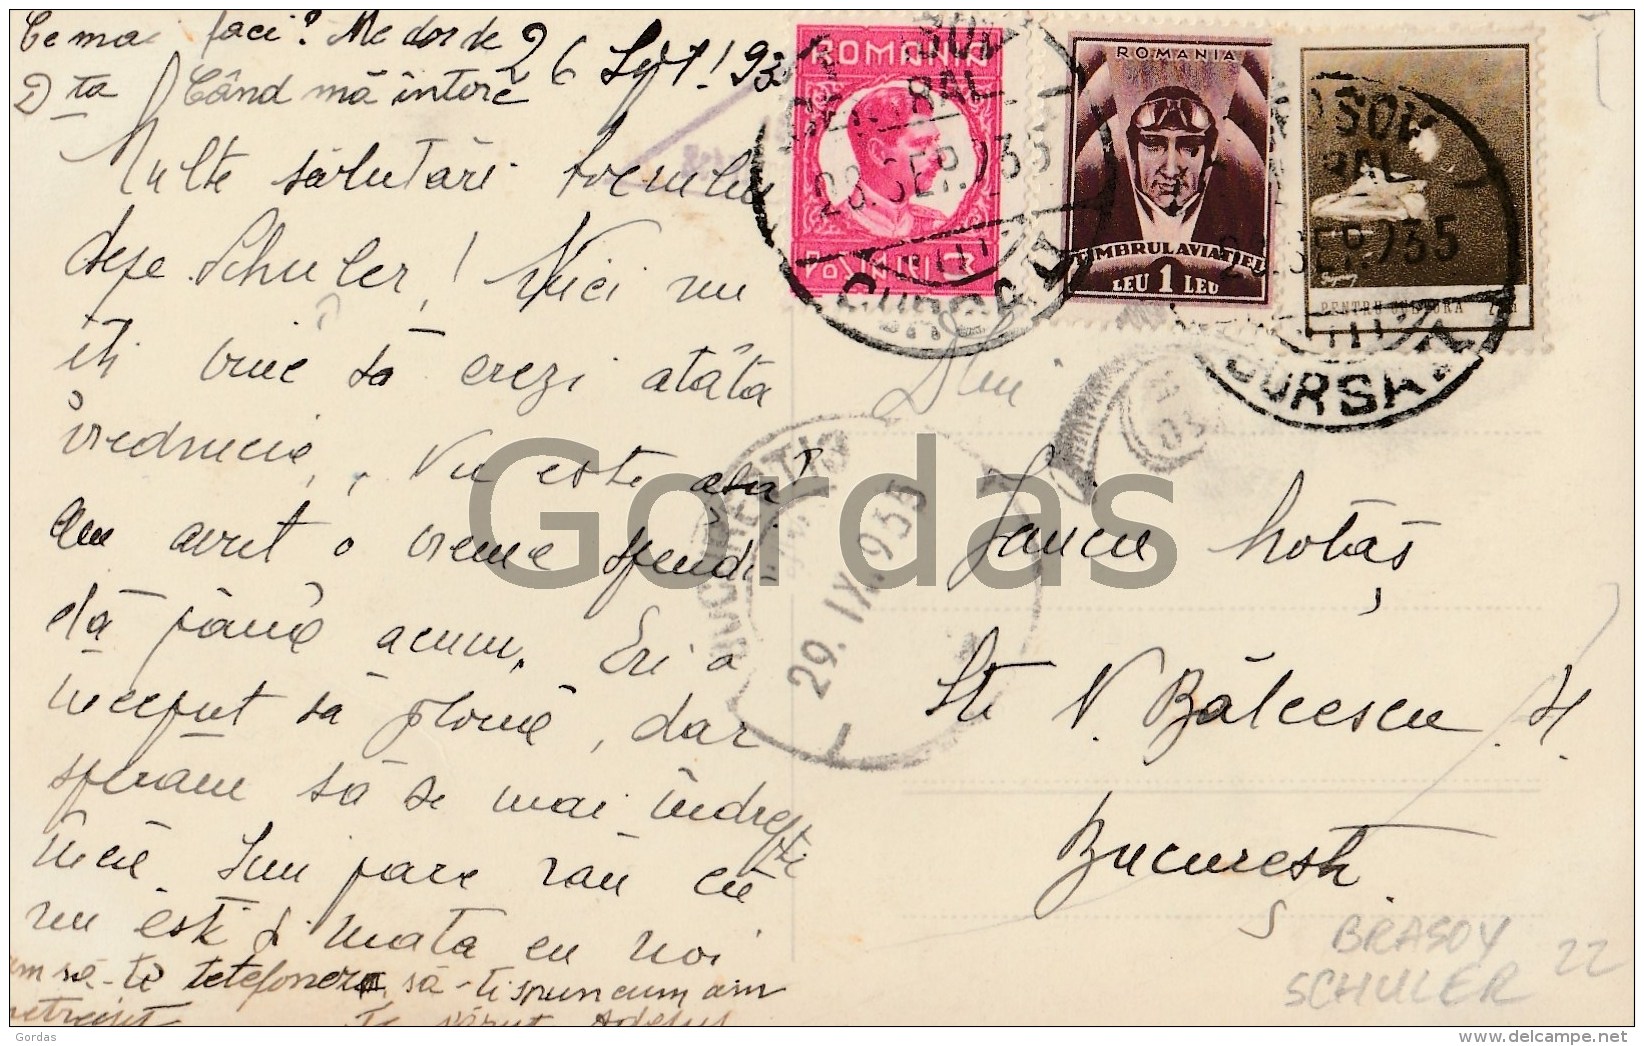 Ce mai faci? Me dor de
Dta Când mă întorc
26 Sept. 935
Multe sălutări
depe Schuler! Nici nu
îți vine să crezi atâta
vrednicie, Nu este așa?
Am avut o vreme splendi
dă până acum. Eri a
început să plouă, dar
sperăm să se mai îndrepte
încă. Îmi pare rău că
nu ești și mata cu noi
să-ți telefonez, să-ți spun cum am
petrecut Te sărut
ROMANIA
POSTA LEI
ROMANIA
TIMBRUL AVIATIEI
LEU 1 LEU
PENTRU CULTURA
28. SEP. 935
BUCUREȘTI
29. IX. 935
Dlui
Iancu Notaș
Str N. Bălcescu
București
BRASOV
SCHULER
22
Gordas
delcampe.net